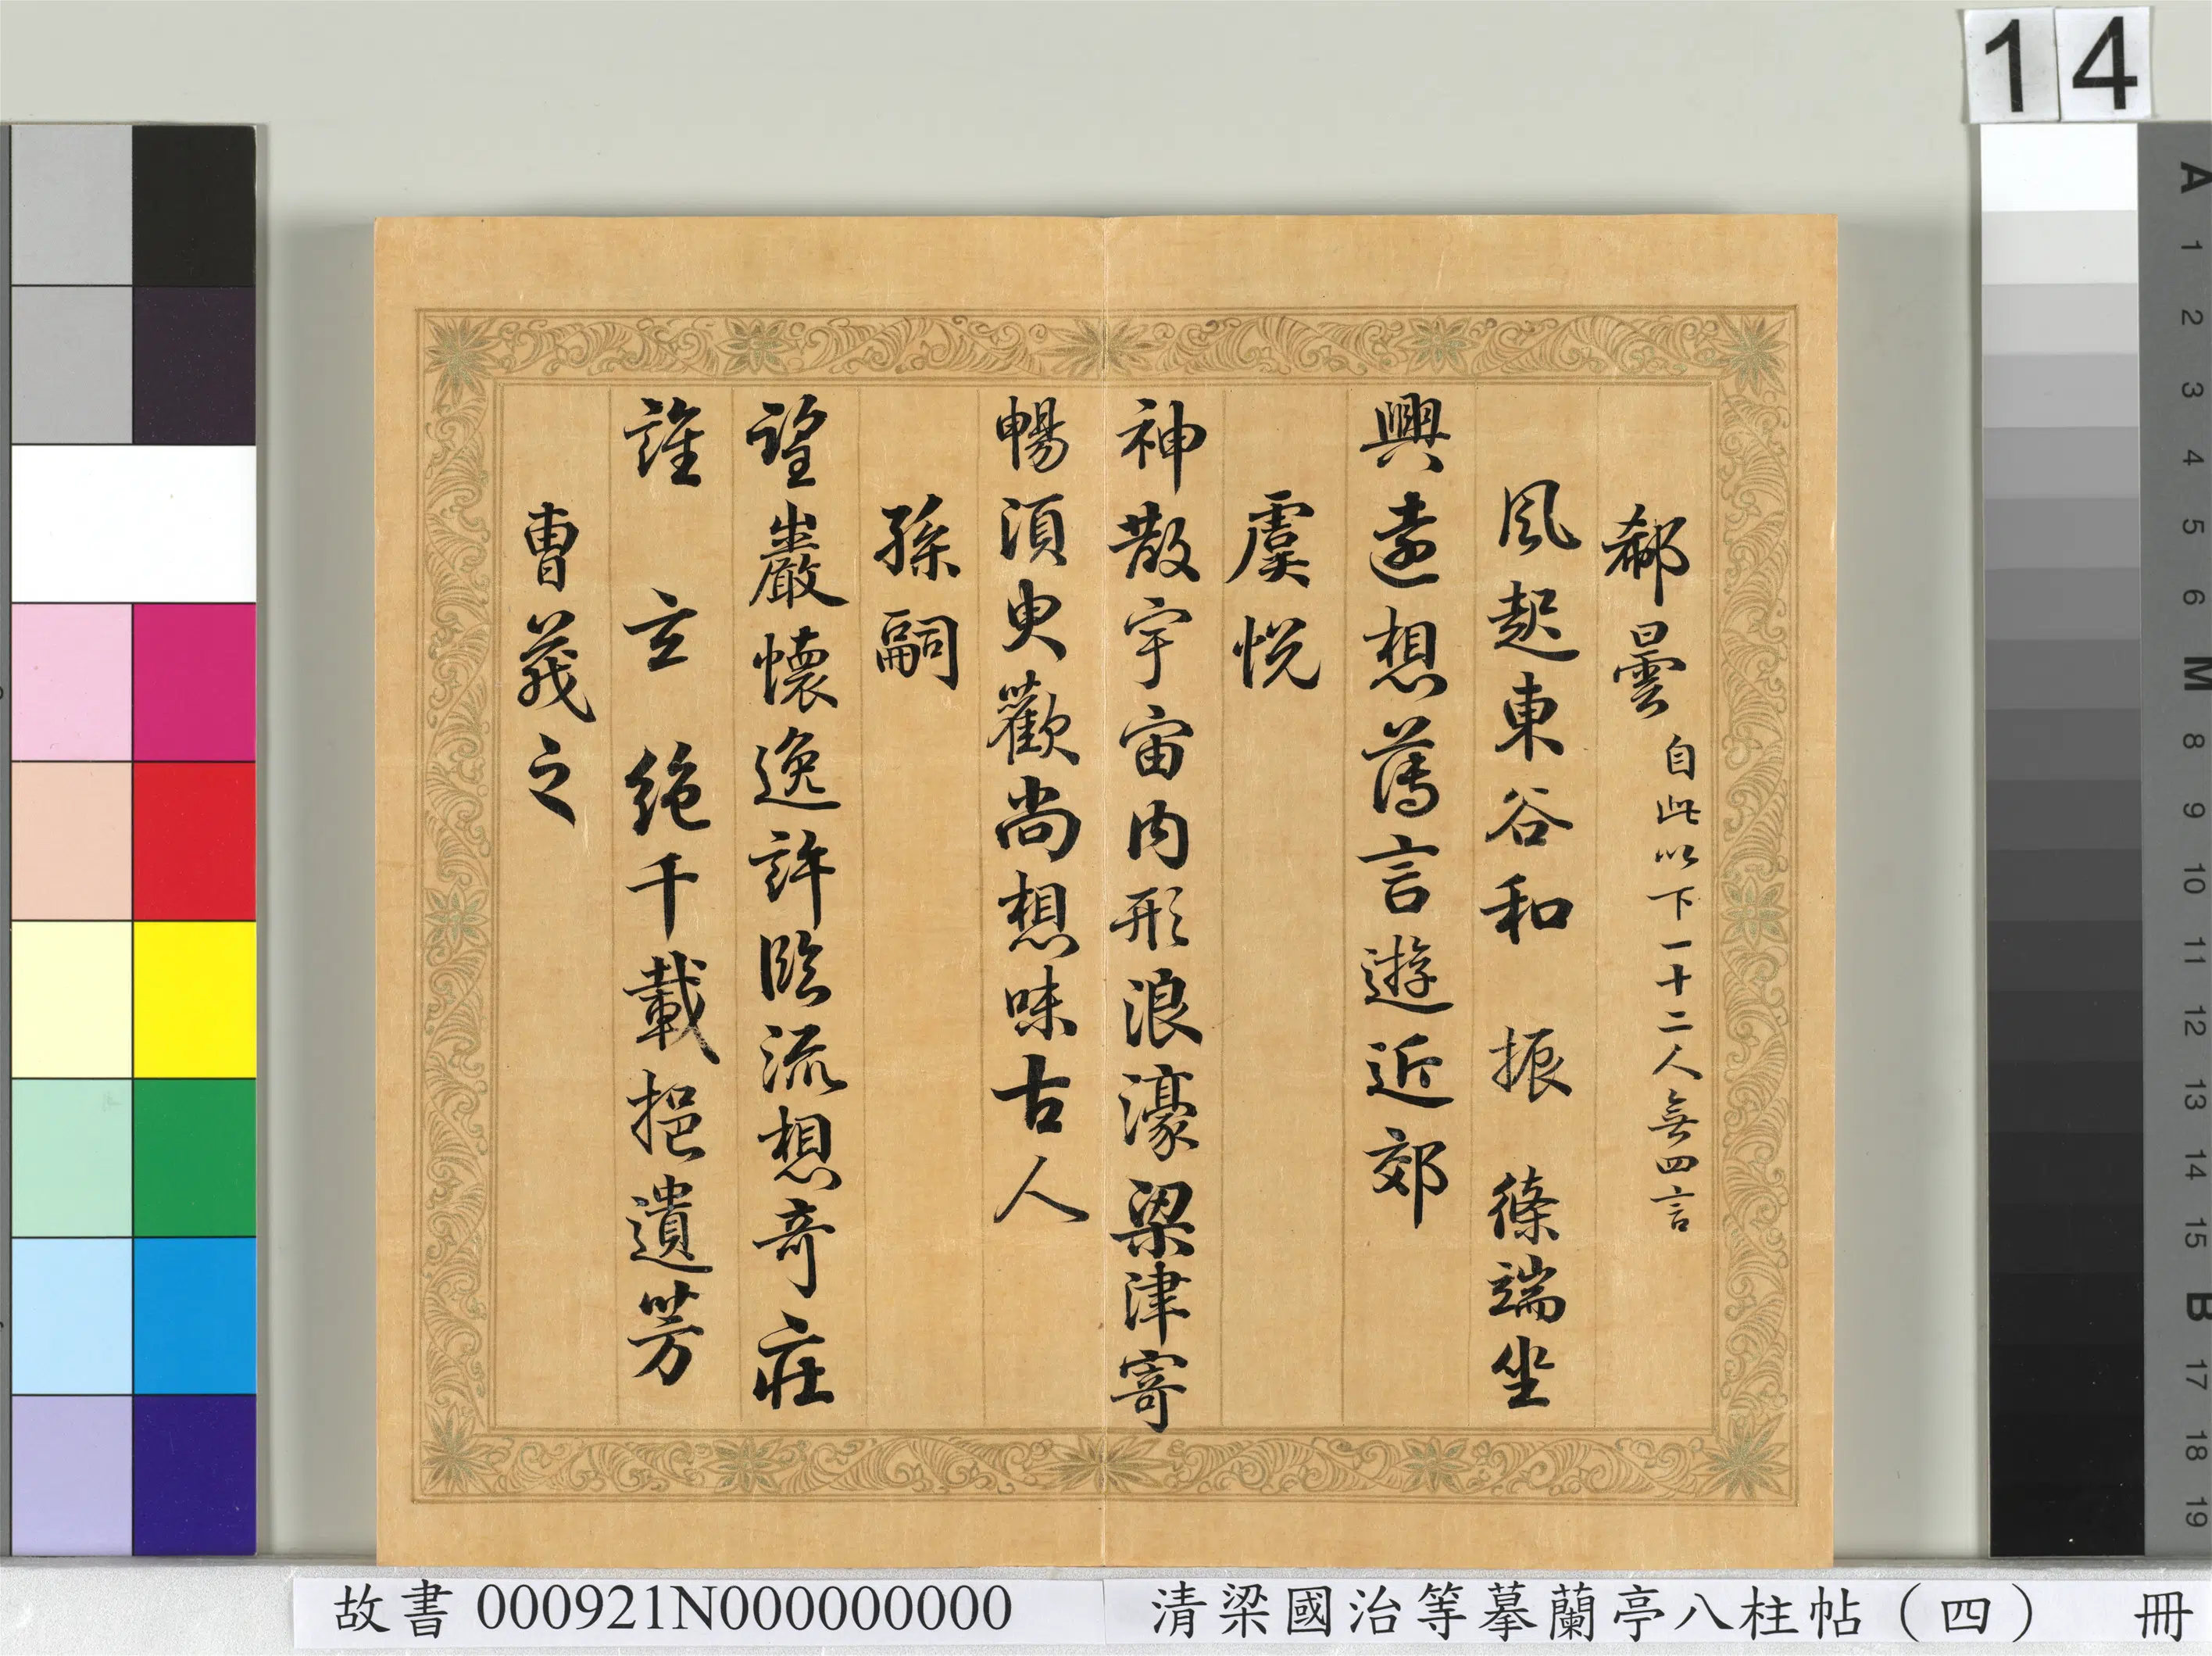 14
郗曇 自此以下一十二人無四言
風起東谷和 振 條端坐
興遠想薄言遊近郊
虞悅
神散宇宙內形浪濠梁津寄
暢須臾歡尚想味古人
孫嗣
望巖懷逸許臨流想奇莊
誰 云 絕千載挹遺芳
曹茂之
A 1 2 3 4 5 6 M 8 9 10 11 12 13 14 15 B 17 18 19
故書 000921N000000000 清梁國治等摹蘭亭八柱帖（四） 冊